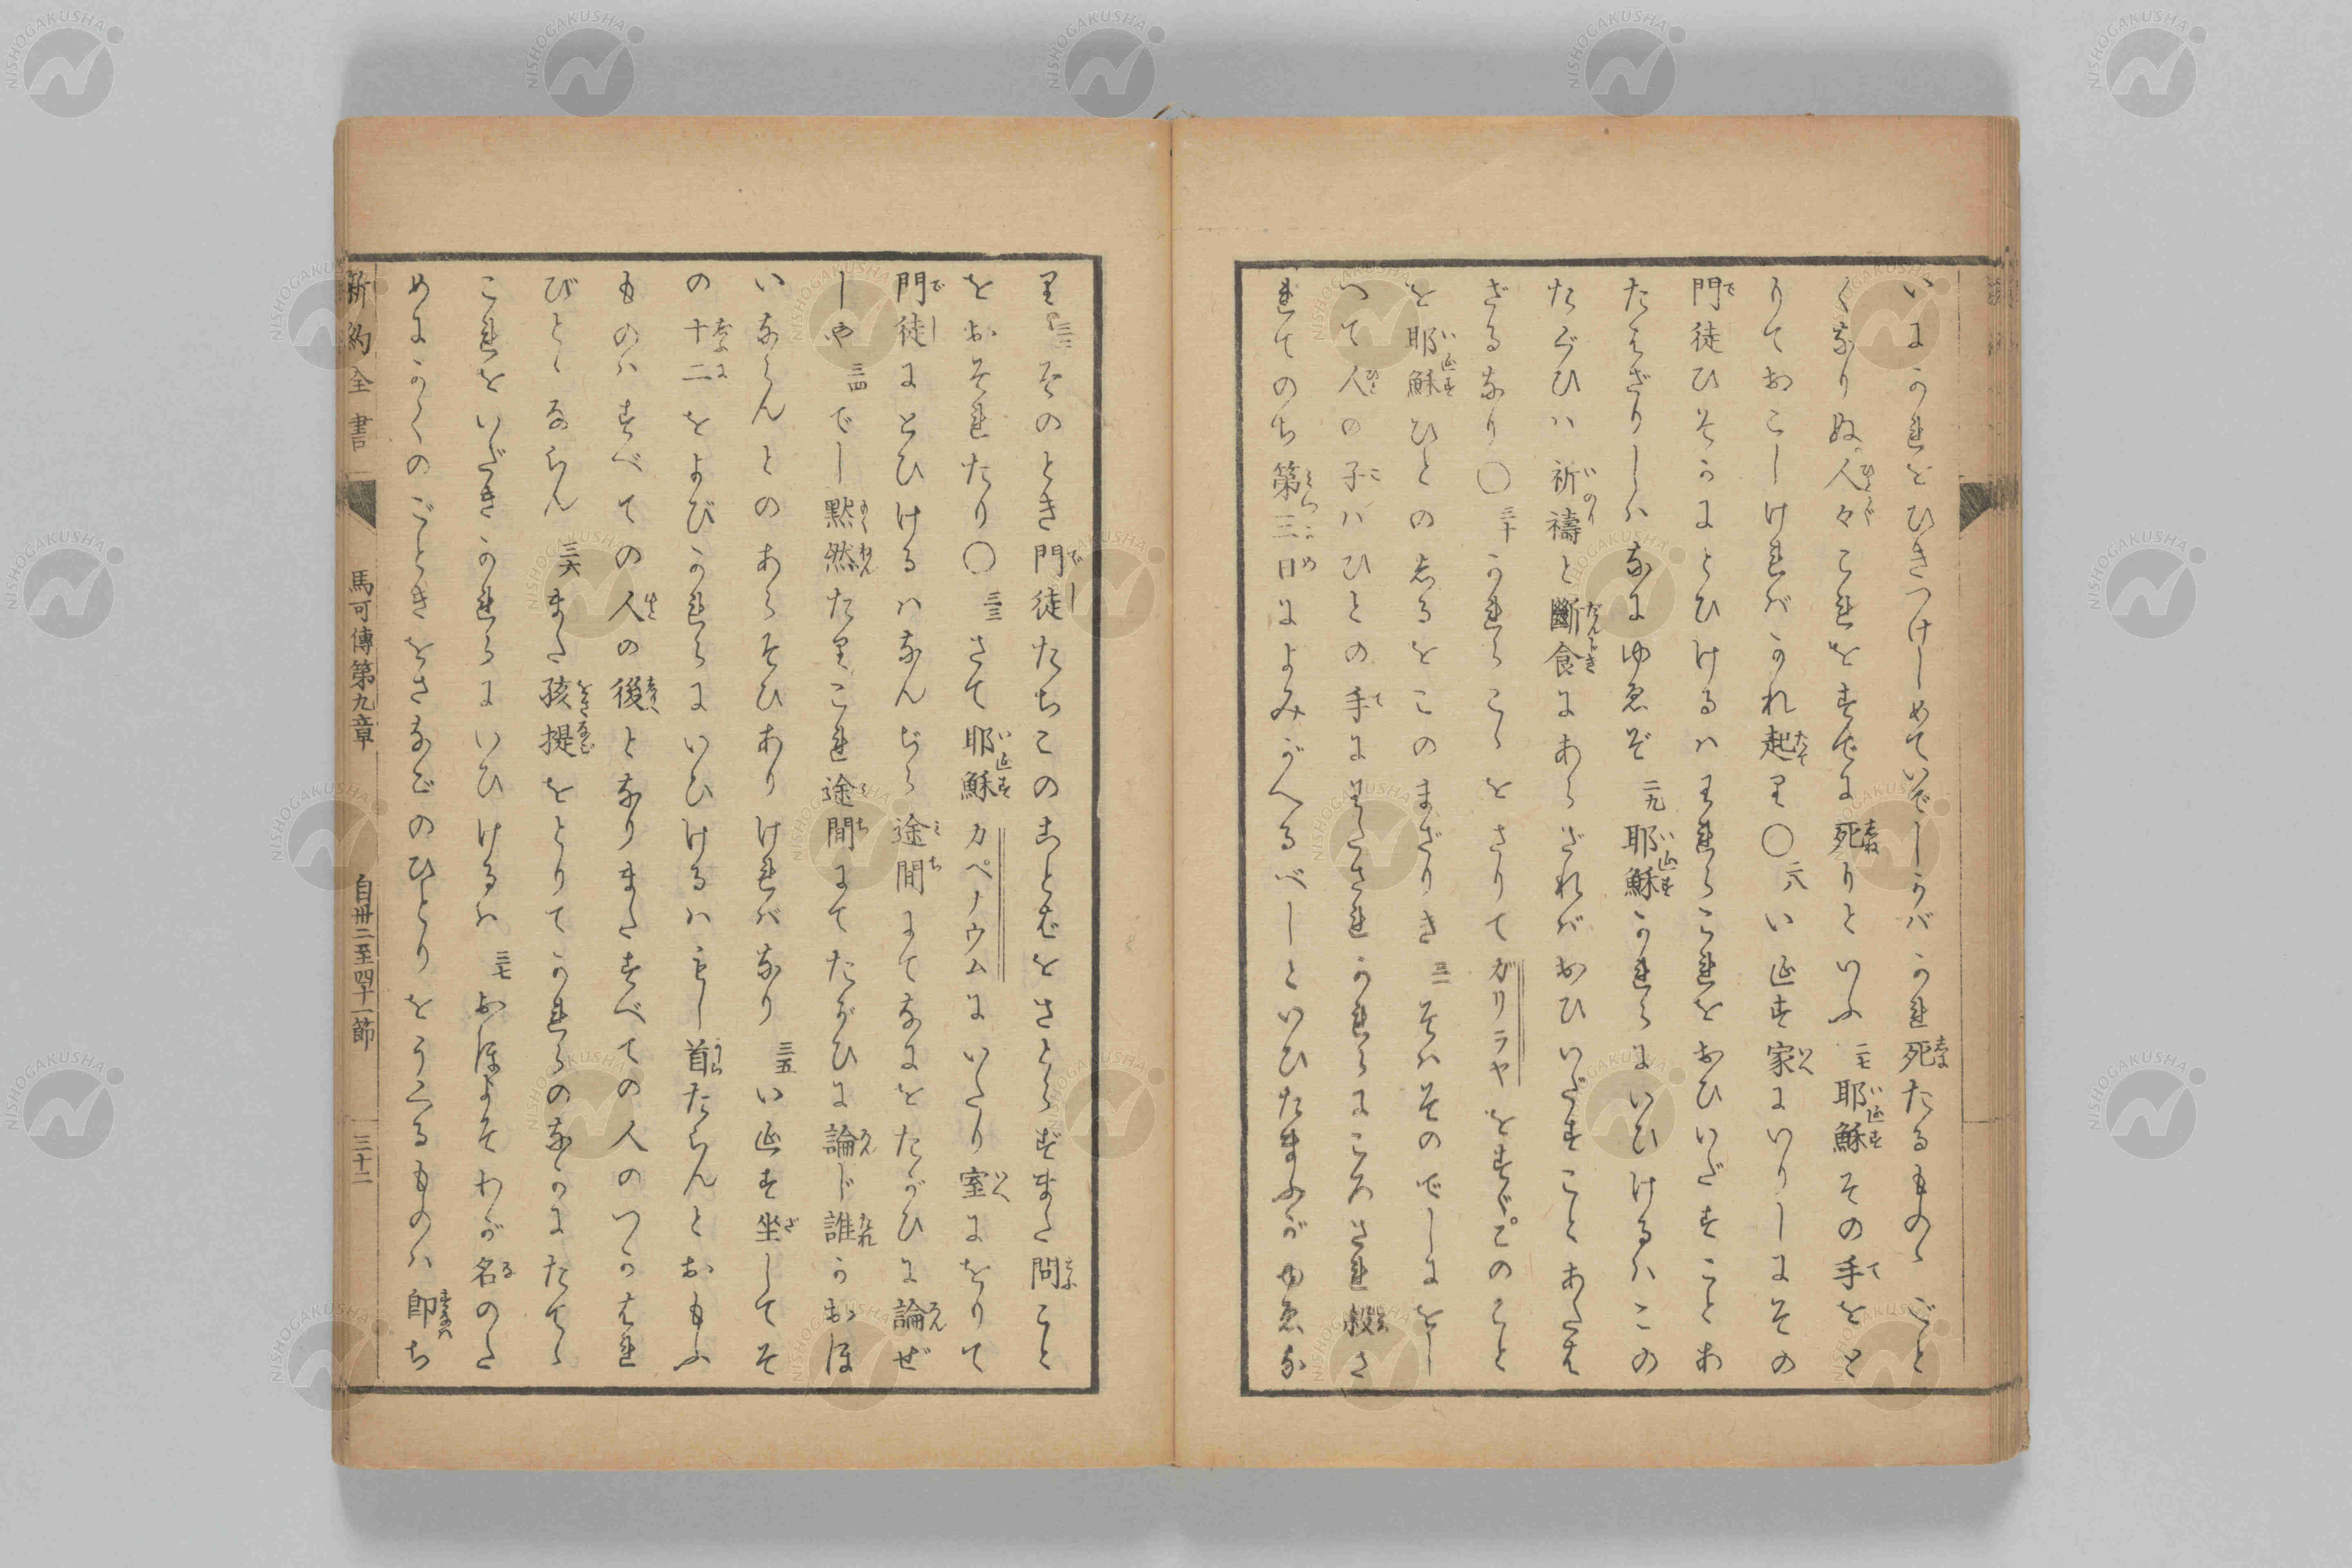 いにかれをひきつけしめていでしかバかれ死たるものゝごと
くなりぬ人々これをすでに死りといふ 二七 耶穌その手をと
りておこしけれバかれ起り〇 二八 いゑす家にいりしにその
門徒ひそかにとひけるハわれらこれをおひいだすことあ
たはざりしハなにゆゑぞ 二九 耶穌かれらにいひけるハこの
たぐひハ祈禱と斷食にあらざればおひいだすことあたは
ざるなり〇 三十 かれらこゝをさりてガリラヤをすぐこのこと
を耶穌ひとのしるをこのまざりき 三一 そハそのでしにをし
へて人の子ハひとの手にわたされかれらにころされ殺さ
れてのち第三日によみがへるべしといひたまふがゆゑな
り 三二 そのとき門徒たちこのことばをさとらずまた問こと
をおそれたり〇 三三 さて耶穌カペナウムにいたり室にをりて
門徒にとひけるハなんぢら途間にてなにをたがひに論ぜ
しや 三四 でし黙然たりこれ途間にてたがひに論じ誰かおほ
いならんとのあらそひありければなり 三五 いゑす坐してそ
の十二をよびかれらにいひけるハもし首たらんとおもふ
ものハすべての人の後となりまたすべての人のつかはれ
びとゝならん 三六 また孩提をとりてかれらのなかにたてゝ
これをいだきかれらにいひけるハ 三七 おほよそわが名のた
めにかくのごときをさなごのひとりをうくるものハ即ち
新約全書 馬可傳第九章 自卅二至四十一節 三十二